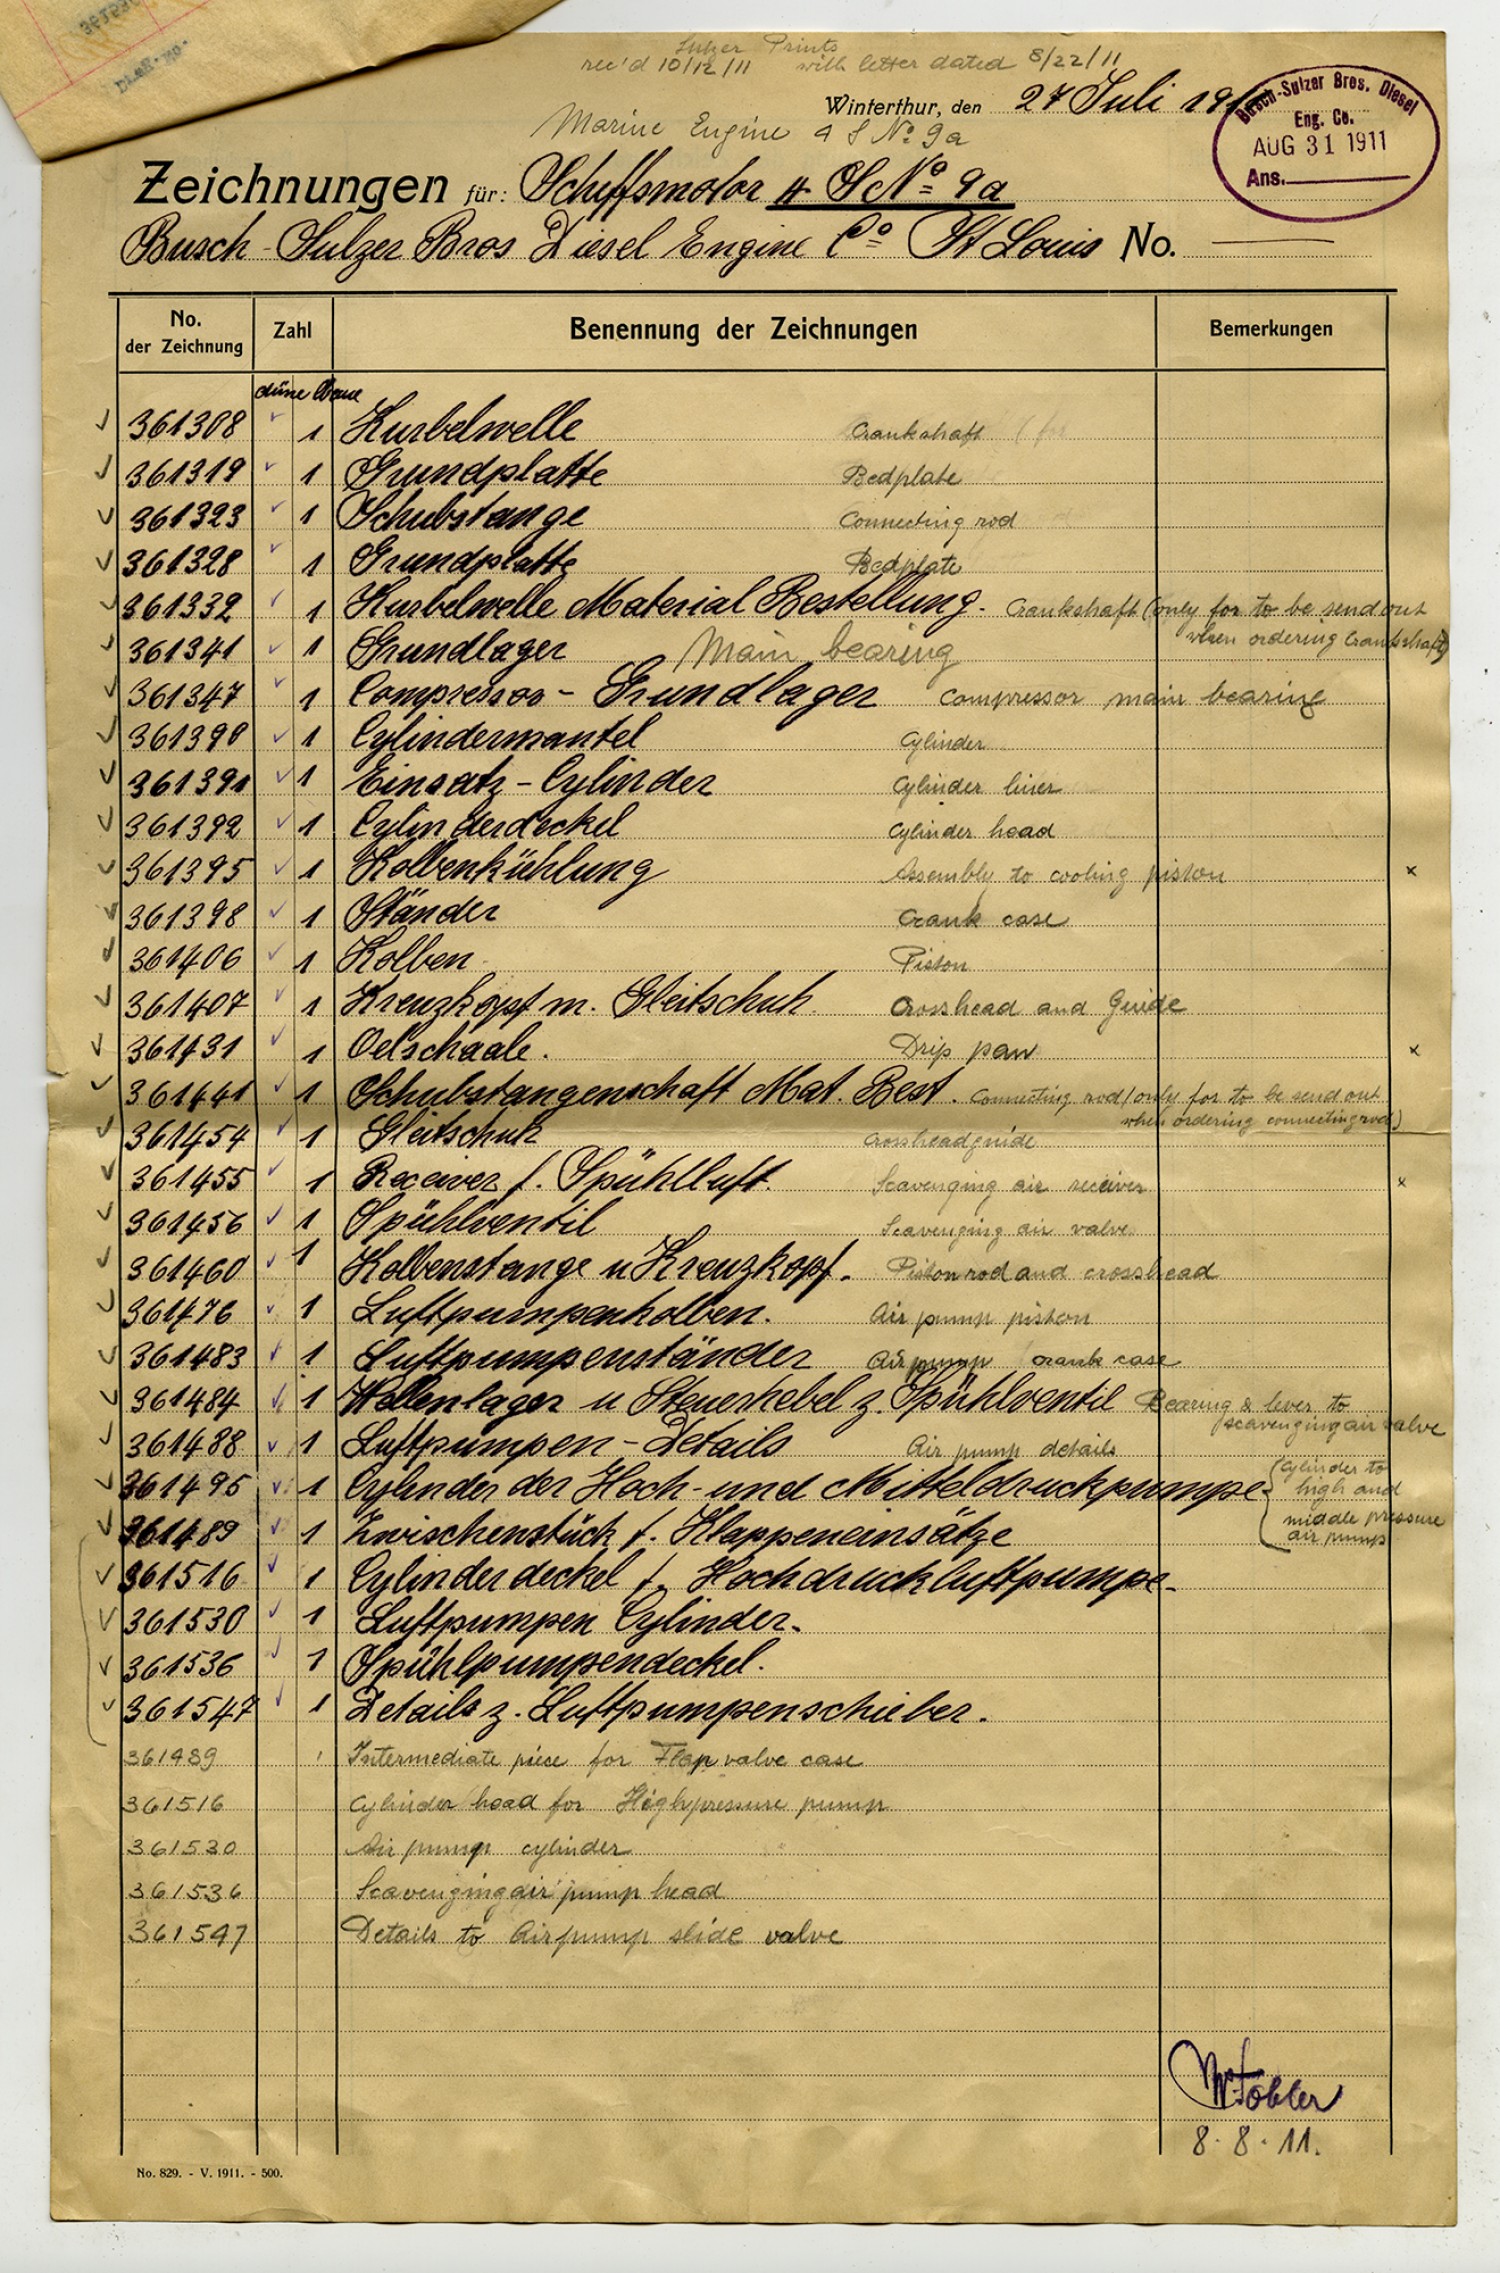 Sulzer Prints
rec'd 10/12/11 with letter dated 8/22/11
Winterthur, den 27 Juli 191
Busch-Sulzer Bros. Diesel
Eng. Co.
AUG 31 1911
Ans.
Marine Engine 4 S No 9a
Zeichnungen für: Schiffsmotor 4 S No 9a
Busch-Sulzer Bros Diesel Engine Co St Louis No.
No. der Zeichnung Zahl Benennung der Zeichnungen Bemerkungen
düne blaue
361308 1 Kurbelwelle Crankshaft (for
361319 1 Grundplatte Bedplate
361323 1 Schubstange Connecting rod
361328 1 Grundplatte Bedplate
361332 1 Kurbelwelle Material Bestellung. Crankshaft (only for to be send out
when ordering Crankshaft)
361341 1 Grundlager Main bearing
361347 1 Compressor-Grundlager Compressor main bearing
361390 1 Cylindermantel Cylinder
361391 1 Einsatz-Cylinder Cylinder liner
361392 1 Cylinderdeckel Cylinder head
361395 1 Kolbenkühlung Assembly to cooling piston x
361398 1 Ständer Crank case
361406 1 Kolben Piston
361407 1 Kreuzkopf m. Gleitschuh. Crosshead and Guide
361431 1 Oelschaale. Drip pan x
361441 1 Schubstangenschaft Mat. Best. Connecting rod (only for to be send out
when ordering connecting rod)
361454 1 Gleitschuh Crossheadguide
361455 1 Receiver f. Spühlluft. Scavenging air receiver x
361456 1 Spühlventil Scavenging air valve
361460 1 Kolbenstange u Kreuzkopf. Piston rod and crosshead
361476 1 Luftpumpenkolben. Air pump piston
361483 1 Luftpumpenständer Air pump crank case
361484 1 Wellenlager u Steuerhebel z. Spühlventil Bearing & lever to
scavenging air valve
361488 1 Luftpumpen-Details Air pump details
361495 1 Cylinder der Hoch- und Mitteldruckpumpe. Cylinder to
high and
middle pressure
air pump
361489 1 Zwischenstück f. Klappeneinsätze
361516 1 Cylinderdeckel f. Hochdruckluftpumpe.
361530 1 Luftpumpen Cylinder.
361536 1 Spühlpumpendeckel.
361547 1 Details z. Luftpumpenschieber.
361489 1 Intermediate piece for Flap valve case
361516 Cylinder head for Highpressure pump
361530 Air pump cylinder
361536 Scavenging air pump head
361547 Details to Air pump slide valve
8.8.11.
No. 829. - V. 1911. - 500.